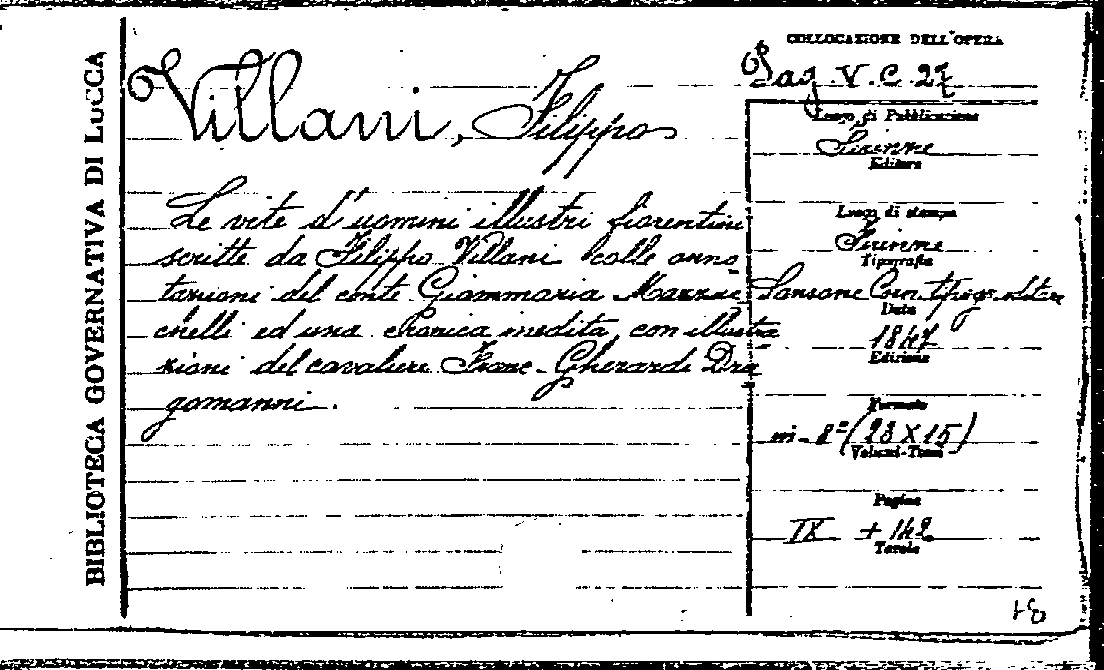 BIBLIOTECA GOVERNATIVA DI LUCCA
Villani, Filippo
Le vite d'uomini illustri fiorentini
scritte da Filippo Villani colle anno-
tazioni del conte Giammaria Mazzuc
chelli ed una cronica inedita con illustra
zioni del cavaliere Franc. Gherardi Dra
gomanni.
COLLOCAZIONE DELL'OPERA
Pag. V. C. 27
Luogo di Pubblicazione
Firenze
Editore
Luogo di stampa
Firenze
Tipografia
Sansone Coen tipogr. editore
Data
1847
Edizione
Formato
in-8º (23 X 15)
Volumi-Tomi
Pagine
IX + 142
Tavole